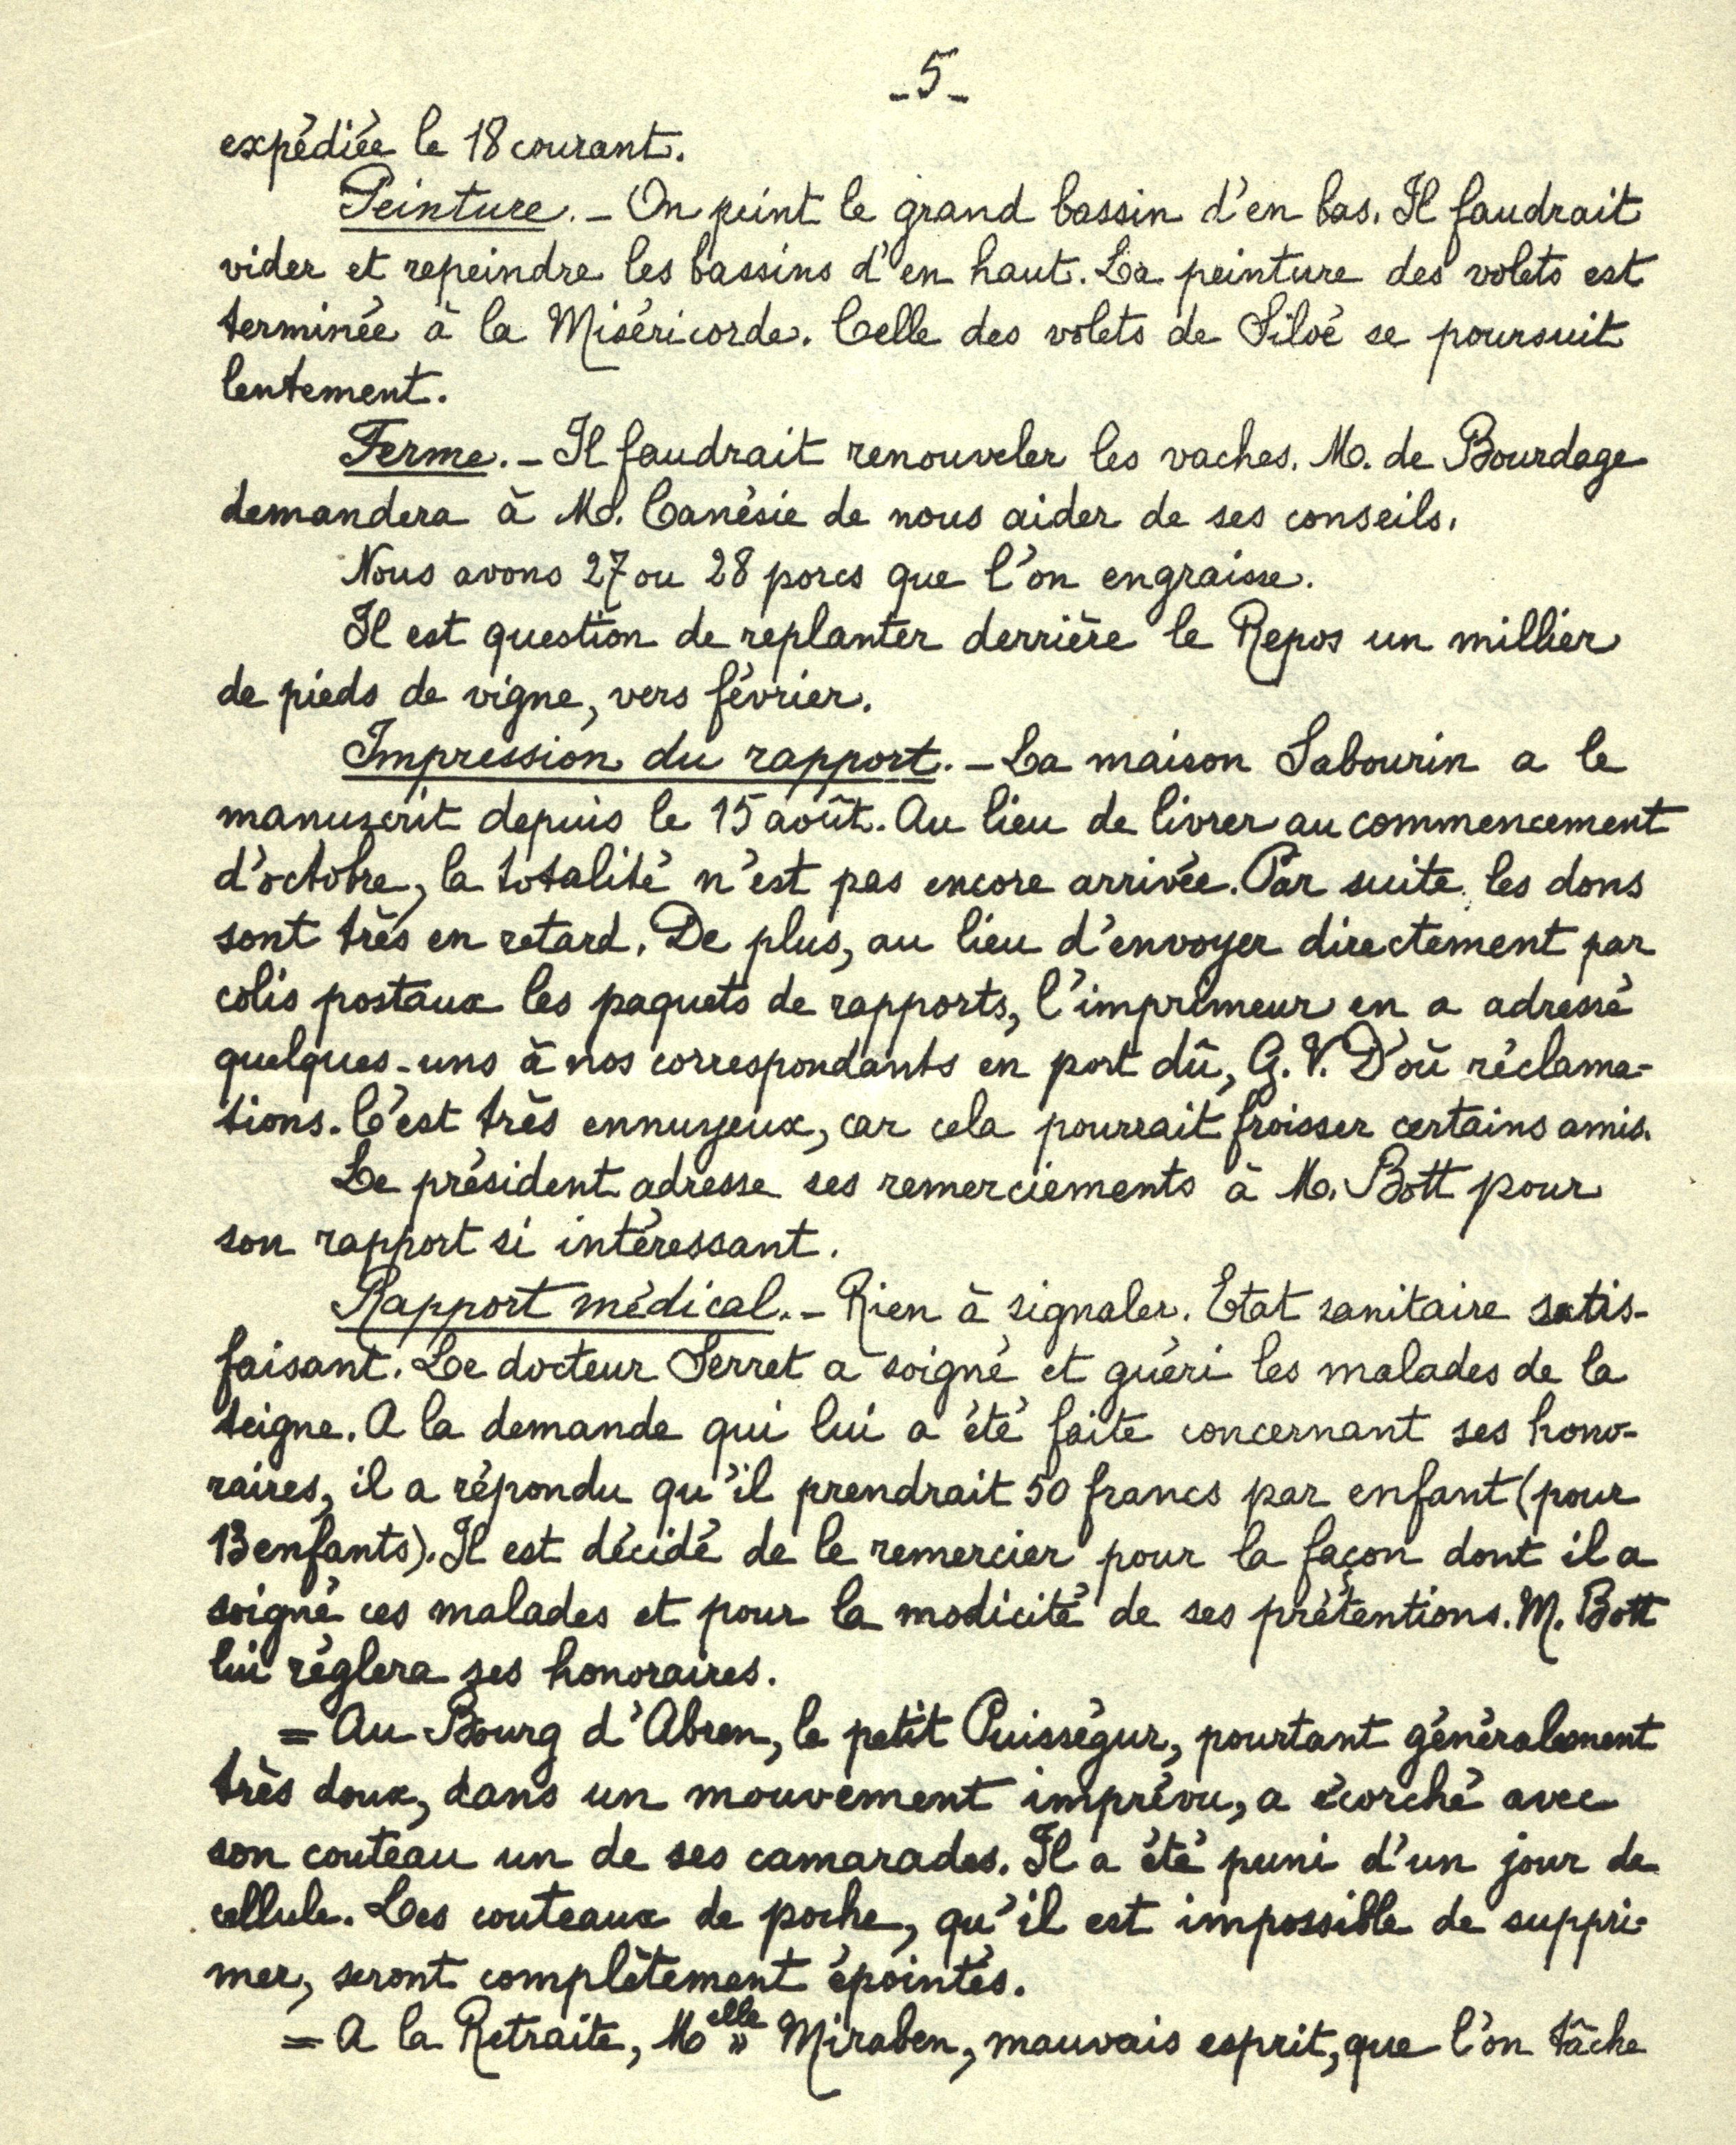 _5_
expédiée le 18 courant.
Peinture. - On peint le grand bassin d'en bas. Il faudrait
vider et repeindre les bassins d'en haut. La peinture des volets est
terminée à la Miséricorde. Celle des volets de Siloé se poursuit
lentement.
Ferme. - Il faudrait renouveler les vaches. M. de Bourdage
demandera à M. Canésie de nous aider de ses conseils.
Nous avons 27 ou 28 porcs que l'on engraisse.
Il est question de replanter derrière le Repos un millier
de pieds de vigne, vers février.
Impression du rapport. - La maison Sabourin a le
manuscrit depuis le 15 août. Au lieu de livrer au commencement
d'octobre, la totalité n'est pas encore arrivée. Par suite les dons
sont très en retard. De plus, au lieu d'envoyer directement par
colis postaux les paquets de rapports, l'imprimeur en a adressé
quelques-uns à nos correspondants en port dû, G. V. D'où réclama-
tions. C'est très ennuyeux, car cela pourrait froisser certains amis.
Le président adresse ses remerciements à M. Bott pour
son rapport si intéressant.
Rapport médical. - Rien à signaler. Etat sanitaire satis-
faisant. Le docteur Serret a soigné et guéri les malades de la
teigne. A la demande qui lui a été faite concernant ses hono-
raires, il a répondu qu'il prendrait 50 francs par enfant (pour
13 enfants). Il est décidé de le remercier pour la façon dont il a
soigné ces malades et pour la modicité de ses prétentions. M. Bott
lui règlera ses honoraires.
= Au Bourg d'Abren, le petit Puisségur, pourtant généralement
très doux, dans un mouvement imprévu, a écorché avec
son couteau un de ses camarades. Il a été puni d'un jour de
cellule. Les couteaux de poche, qu'il est impossible de suppri-
mer, seront complètement épointés.
= A la Retraite, Melle Miraben, mauvais esprit, que l'on tâche